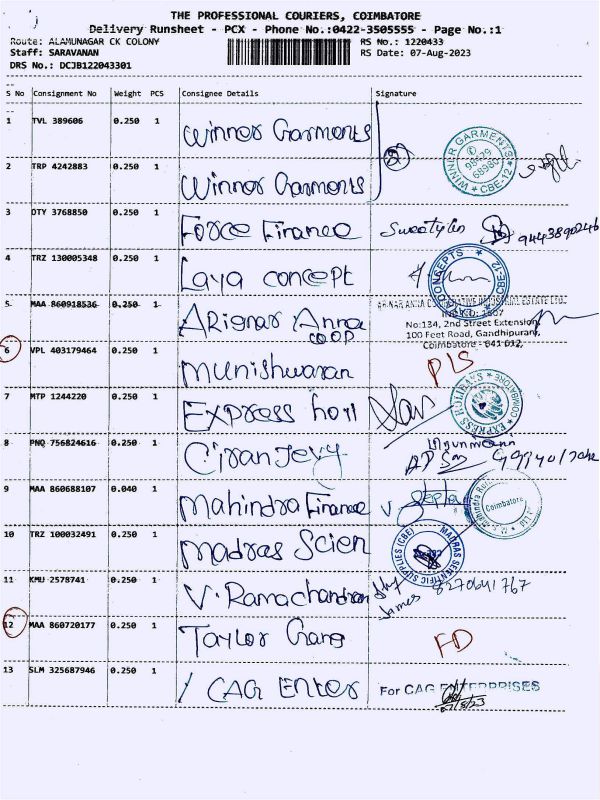 THE PROFESSIONAL COURIERS, COIMBATORE
Delivery Runsheet - PCX - Phone No.:0422-3505555 - Page No.:1
Route: ALAMUNAGAR CK COLONY
RS No.: 1220433
Staff: SARAVANAN
RS Date: 07-Aug-2023
DRS No.: DCJB122043301
S No Consignment No Weight PCS Consignee Details Signature
1 TVL 389606 0.250 1 Winner Garments
WINNER GARMENTS * CBE-12 *
2 TRP 4242883 0.250 1 Winner Garments
3 DTY 3768850 0.250 1 Force Finance
4 TRZ 130005348 0.250 1 Laya concept
CONCEPTS * CBE-12
5 MAA 860918536 0.250 1 Arignar Anna
COOP
No:134, 2nd Street Extension,
100 Feet Road, Gandhipuram,
Coimbatore - 641 012.
6 VPL 403179464 0.250 1 Munishwaran
PLS
7 MTP 1244220 0.250 1 Express
EXPRESS * COIMBATORE
8 PNQ 756824616 0.250 1 Ciranjevy
9 MAA 860688107 0.040 1 Mahindra Finance
Coimbatore
10 TRZ 100032491 0.250 1 Madras Scien
MADRAS SCIENTIFIC SUPPLIES (CBE)
11 KMU 2578741 0.250 1 V. Ramachandran
James 8270641767
12 MAA 860720177 0.250 1 Taylor
FD
13 SLM 325687946 0.250 1 CAG Enter
For CAG ENTERPRISES